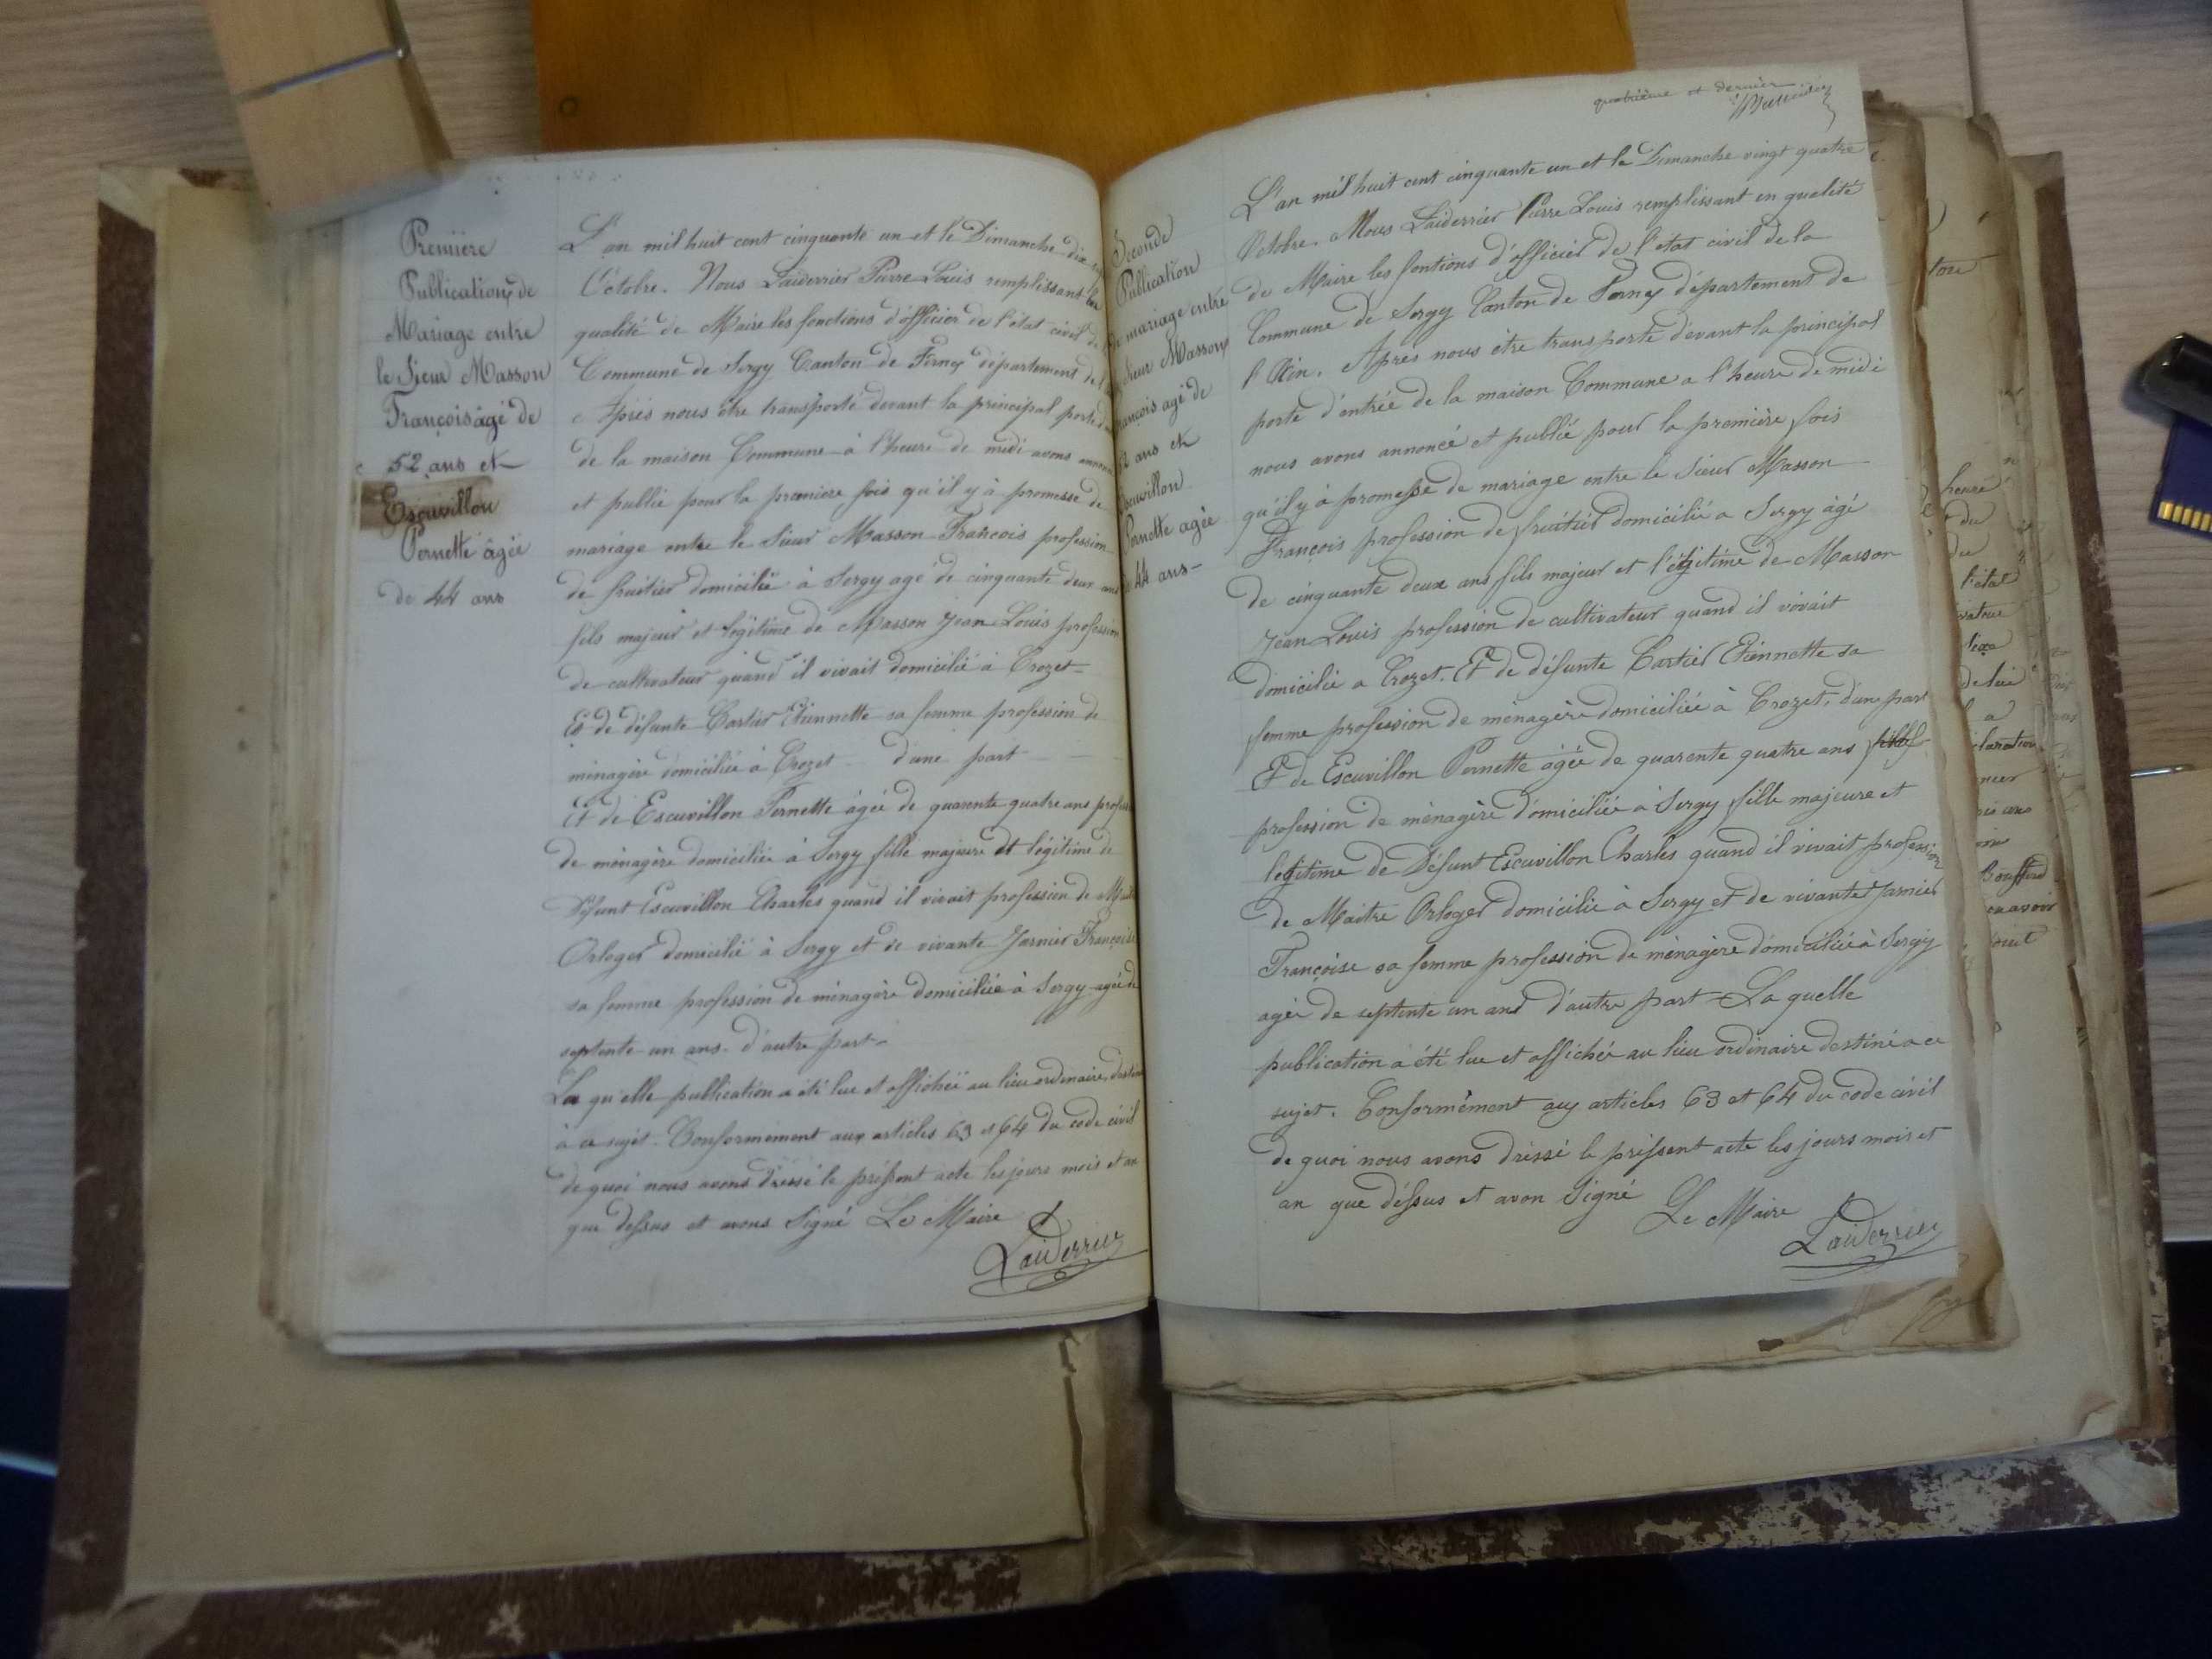 Première
Publication de
Mariage entre
le Sieur Masson
François âgé de
52 ans et
Escuvillon
Pernette âgée
de 44 ans
L'an mil huit cent cinquante un et le Dimanche dix
Octobre. Nous Laiderrier Pierre Louis remplissant en
qualité de Maire les fonctions d'officier de l'état civil de
Commune de Sergy Canton de Ferney département de
Après nous être transporté devant la principal porte
de la maison Commune à l'heure de midi avons
et publié pour la première fois qu'il y à promesse de
mariage entre le Sieur Masson François profession
de fruitier domicilié à Sergy agé de cinquante deux ans
fils majeur et légitime de Masson Jean Louis profession
de cultivateur quand il vivait domicilié à Crozet
Et de défunte Cartier Etiennette sa femme profession de
ménagère domiciliée à Crozet d'une part
Et de Escuvillon Pernette âgée de quarente quatre ans
de ménagère domiciliée à Sergy fille majeure et légitime de
Défunt Escuvillon Charles quand il vivait profession de
Orloger domicilié à Sergy et de vivante Jarnier Françoise
sa femme profession de ménagère domiciliée à Sergy agée de
septente un ans d'autre part
La qu'elle publication a été lue et affichée au lieu ordinaire
à ce sujet. Conformément aux articles 63 et 64 du code civil
de quoi nous avons dressé le présent acte les jours mois et an
que dessus et avons signé Le Maire
Laiderrier
quatrième et dernier
Seconde
Publication
mariage entre
Sieur Masson
François agé de
ans et
Escuvillon
Pernette agée
44 ans
L'an mil huit cent cinquante un et le Dimanche vingt quatre
Octobre. Nous Laiderrier Pierre Louis remplissant en qualité
de Maire les fontions d'officier de l'etat civil de la
Commune de Sergy Canton de Ferney département de
l'Ain. Après nous être transporté devant la principal
porte d'entrée de la maison Commune a l'heure de midi
nous avons annoncé et publié pour la première fois
qu'il y à promesse de mariage entre le Sieur Masson
François profession de fruitier domicilié a Sergy âgé
de cinquante deux ans fils majeur et légitime de Masson
Jean Louis profession de cultivateur quand il vivait
domicilié a Crozet. Et de défunte Cartier Etiennette sa
femme profession de ménagère domiciliée à Crozet, d'une part
Et de Escuvillon Pernette âgée de quarente quatre ans
profession de ménagère domiciliée à Sergy fille majeure et
legitime de Défunt Escuvillon Charles quand il vivait profession
de Maitre Orloger domicilié à Sergy et de vivante Jarnier
Françoise sa femme profession de ménagère domiciliée à Sergy
agée de septente un ans d'autre part La quelle
publication à été lue et affichée au lieu ordinaire destiné a ce
sujet. Conformément aux articles 63 et 64 du code civil
de quoi nous avons dressé le présent acte les jours mois et
an que dessus et avon Signé
Le Maire
Laiderrier